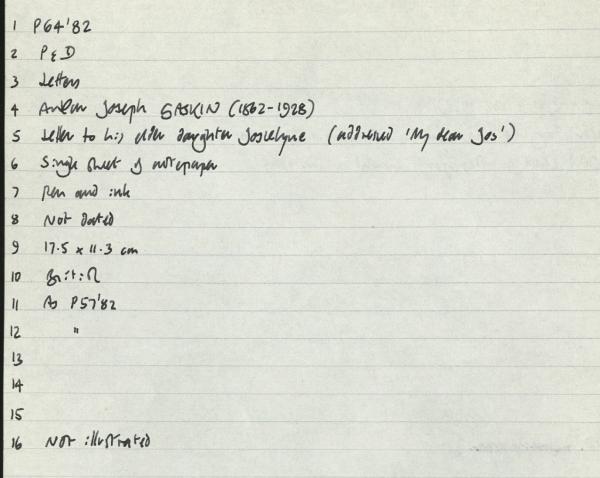 1 P64'82
2 P&D
3 Letters
4 Arthur Joseph GASKIN (1862-1928)
5 Letter to his elder daughter Joscelyne (addressed 'My dear Jos')
6 Single sheet of notepaper
7 Pen and ink
8 Not dated
9 17.5 x 11.3 cm
10 British
11 As P57'82
12 "
13
14
15
16 Not illustrated